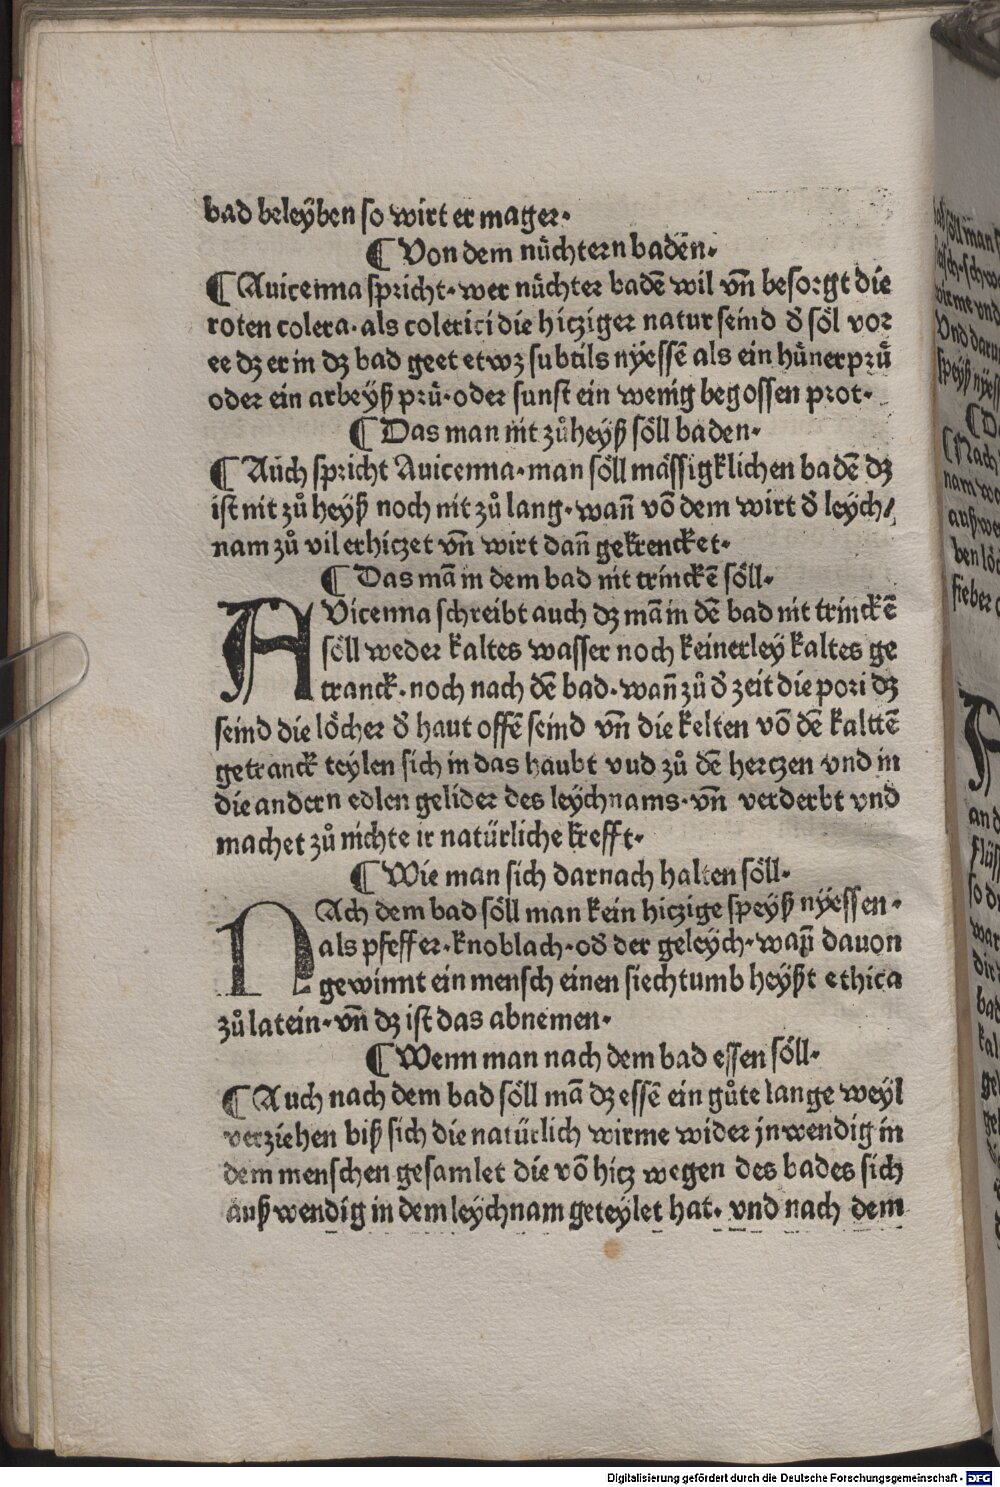 bad beleÿben so wirt er mager·
¶ Von dem nüchtern baden·
¶ Auicenna spricht· wer nüchter badẽ wil vñ besorgt die
roten colera· als colerici die hicziger natur seind d̕ söl vor
ee dz er in dz bad geet etwz subtils nÿessẽ als ein hüner prů
oder ein arbeÿß prü· oder sunst ein wenig begossen prot·
¶ Das man nit zů heyß söll baden·
¶ Auch spricht Auicenna· man söll mässigklichen badẽ dz
ist nit zů heÿß noch nit zů lang· wañ võ dem wirt d̕ leÿch/
nam zů vil erhiczet vñ wirt dañ gekrencket·
¶ Das mã in dem bad nit trinckẽ söll·
AVicenna schreibt auch dz mã in dẽ bad nit trinckẽ
söll weder kaltes wasser noch keinerley kaltes ge
tranck· noch nach dẽ bad· wañ zů d̕ zeit die pori dz
seind die löcher d̕ haut offẽ seind vñ die kelten võ dẽ kalttẽ
getranck teylen sich in das haubt vud zů dẽ herczen vnd in
die andern edlen gelider des leÿchnams· vñ verderbt vnd
machet zů nichte ir natürliche krefft·
¶ Wie man sich darnach halten söll·
NAch dem bad söll man kein hiczige speÿß nÿessen·
als pfeffer· knoblach· od̕ der geleÿch· wañ dauon
gewinnt ein mensch einen siechtumb heÿßt ethica
zů latein· vñ dz ist das abnemen·
¶ Wenn man nach dem bad essen söll·
¶ Auch nach dem bad söll mã dz essẽ ein gůte lange weÿl
verziehen biß sich die natürlich wirme wider jnwendig in
dem menschen gesamlet die võ hicz wegen des bades sich
außwendig in dem leÿchnam geteÿlet hat· vnd nach dem
Digitalisierung gefördert durch die Deutsche Forschungsgemeinschaft - DFG